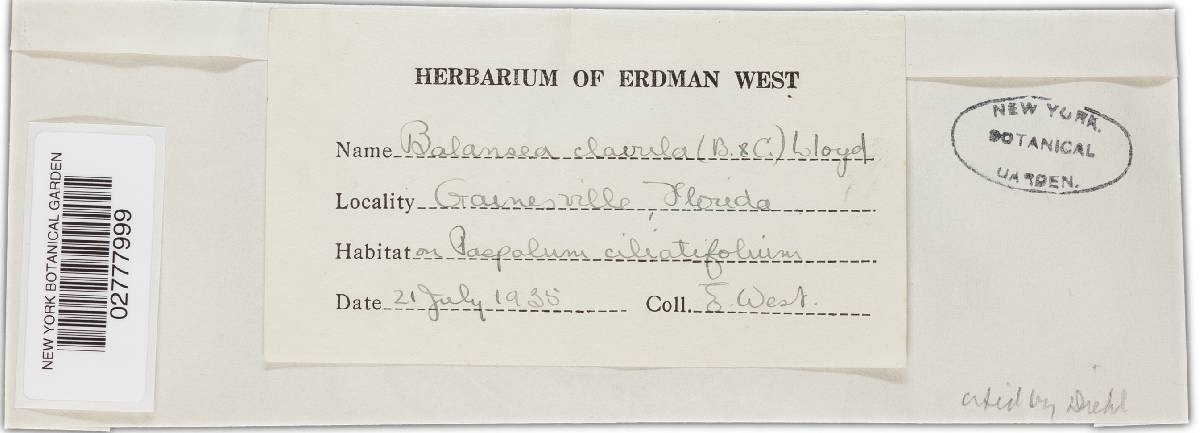 HERBARIUM OF ERDMAN WEST
Name Balansea clavula (B. & C.) Lloyd
Locality Gainesville, Florida
Habitat on Paspalum ciliatifolium
Date 21 July 1935 Coll. E. West.
NEW YORK
BOTANICAL
GARDEN.
NEW YORK BOTANICAL GARDEN
02777999
cited by Diehl